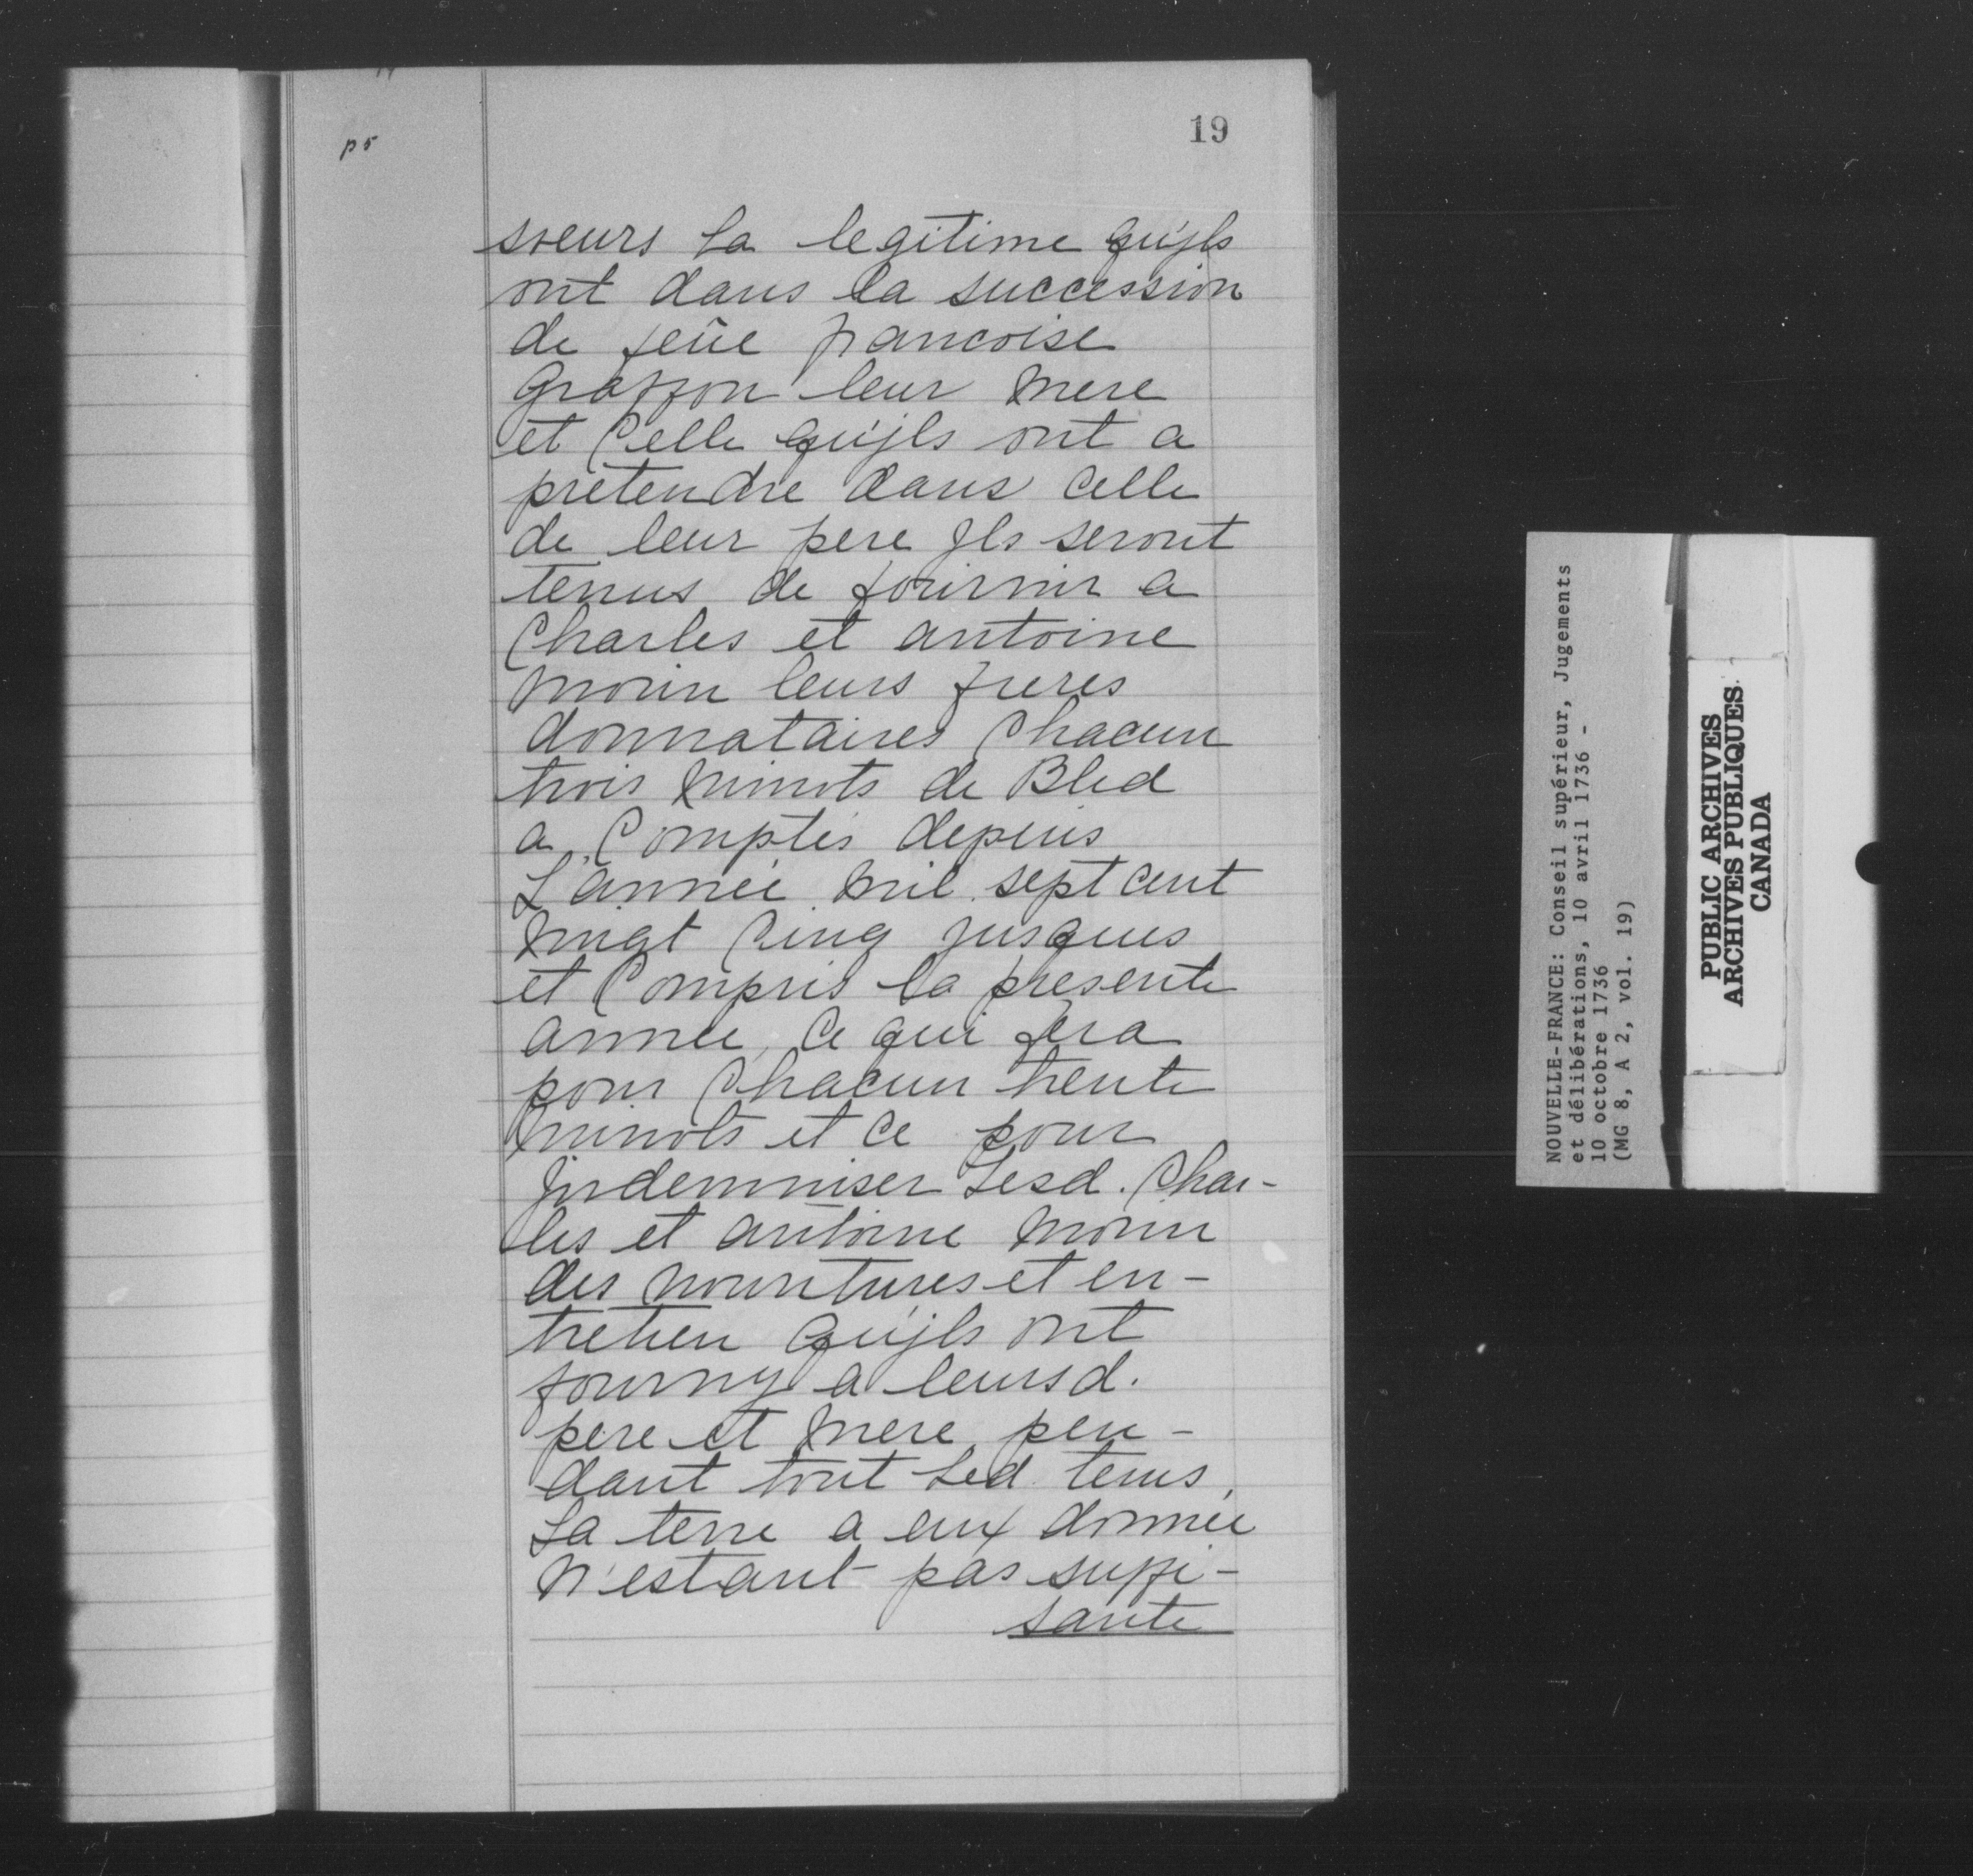 p5
19
soeurs La legitime qu'jls
ont dans la succession
de feüe francoise
Graffon leur Mere
et Celle qu'jls ont a
pretendre dans Celle
de leur pere Jls seront
tenus de fournir a
Charles et antoine
Morin leurs freres
donnataires Chacun
trois Minots de Bled
a Comptés depuis
L'année Mil sept cent
Vingt Cinq jusques
et Compris la presente
année, Ce qui fera
pour Chacun trente
Minots et ce pour
Jndemniser Lesd. Char-
les et antoine Morin
des Nourritures et en-
tretien qu'jls ont
fourny a leursd.
pere et Mere pen-
dant tout Led. tems,
La terre a eux donnée
N'estant pas suffi-
sante
NOUVELLE-FRANCE: Conseil supérieur, Jugements
et délibérations, 10 avril 1736 -
10 octobre 1736
(MG 8, A 2, vol. 19)
PUBLIC ARCHIVES
ARCHIVES PUBLIQUES
CANADA